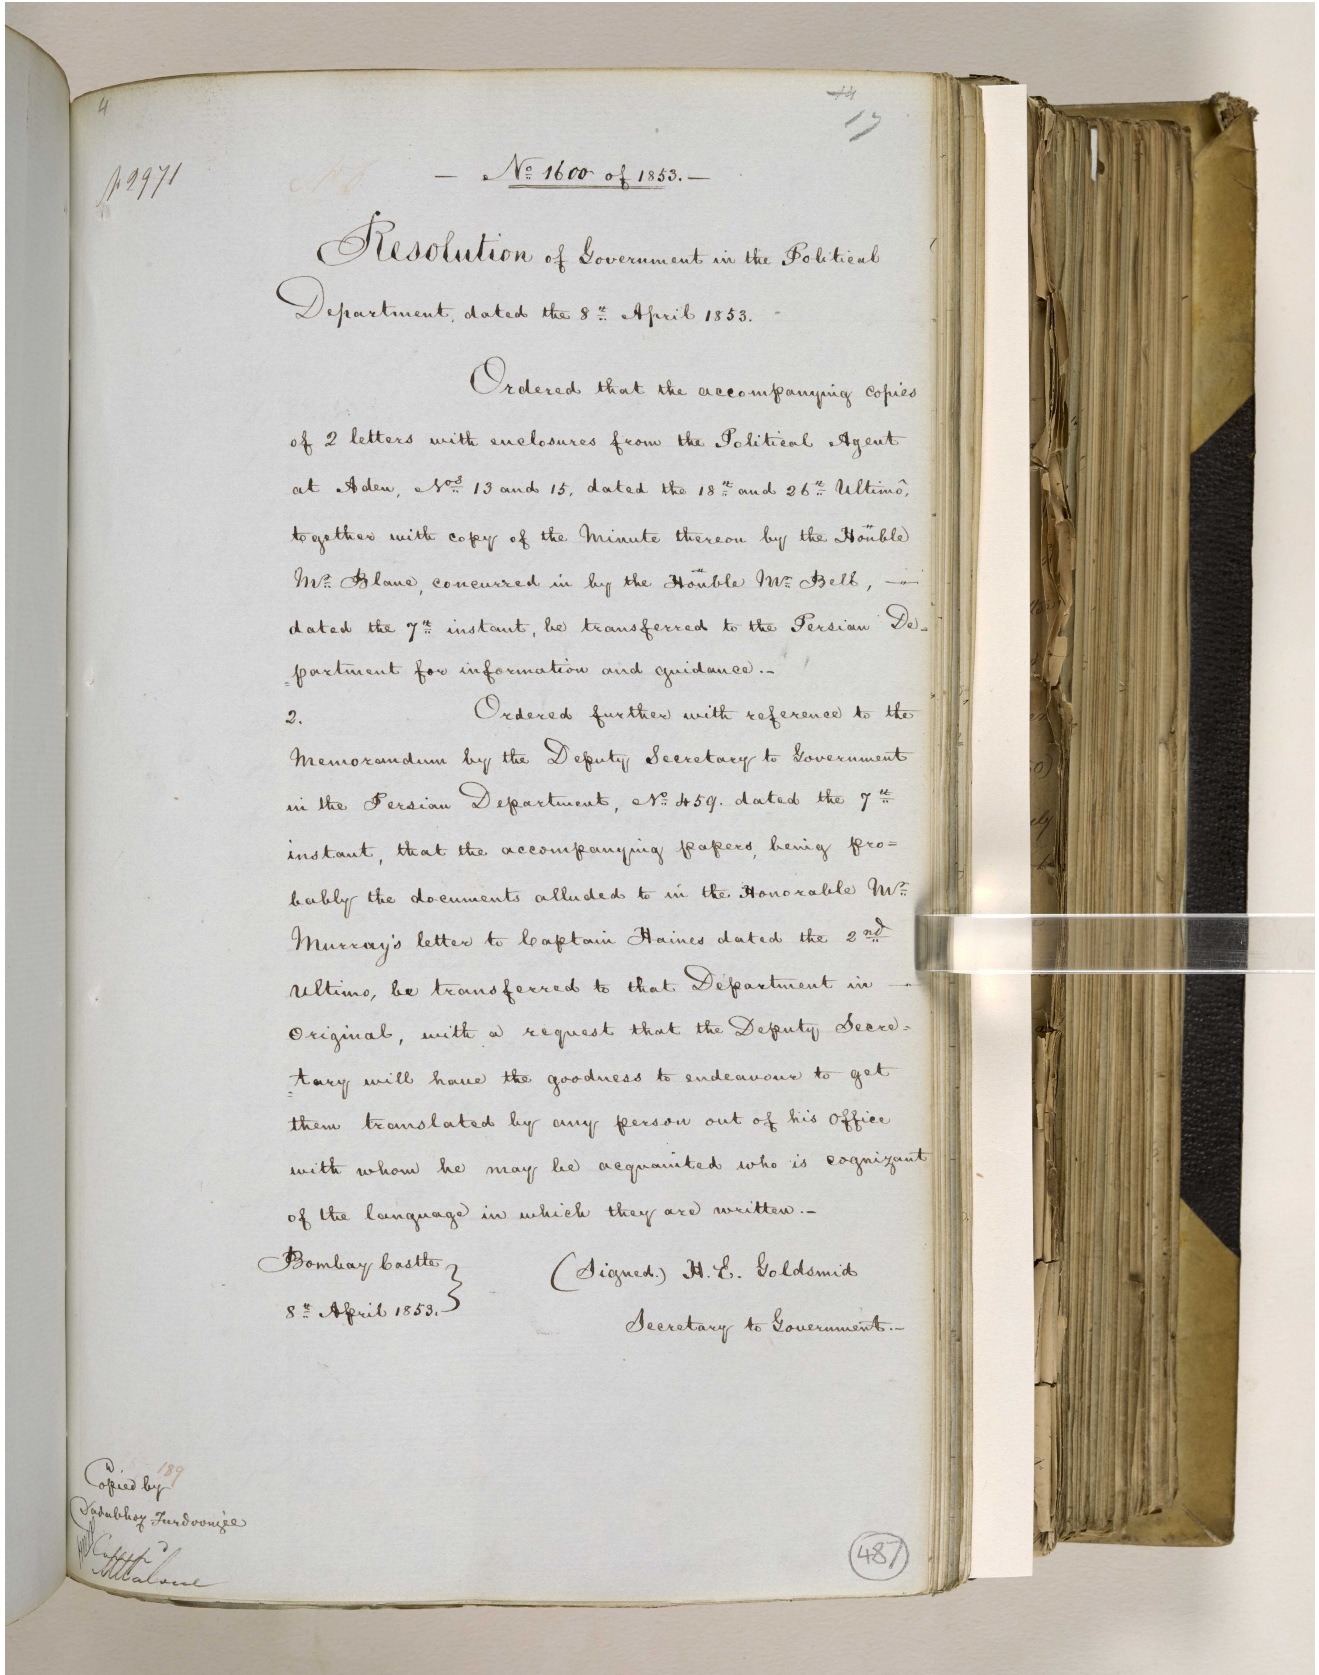 4
17
p 2971
— No. 1600 of 1853. —
Resolution of Government in the Political
Department, dated the 8th April 1853. -
Ordered that the accompanying copies
of 2 letters with enclosures from the Political Agent
at Aden, Nos. 13 and 15, dated the 18th and 26th Ultimo,
together with copy of the Minute thereon by the Honble
Mr. Blane, concurred in by the Honble Mr. Bell, —
dated the 7th instant, be transferred to the Persian De-
=partment for information and guidance.-
2. Ordered further with reference to the
Memorandum by the Deputy Secretary to Government
in the Persian Department, No. 459. dated the 7th
instant, that the accompanying papers, being pro=
bably the documents alluded to in the Honorable Mr.
Murray's letter to Captain Haines dated the 2nd
Ultimo, be transferred to that Department in —
Original, with a request that the Deputy Secre=
=tary will have the goodness to endeavour to get
them translated by any person out of his Office
with whom he may be acquainted who is cognizant
of the language in which they are written.-
Bombay Castle } (Signed.) H. E. Goldsmid
8th April 1853. Secretary to Government.-
189
Copied by
Dadabhoy Furdoonjee
487